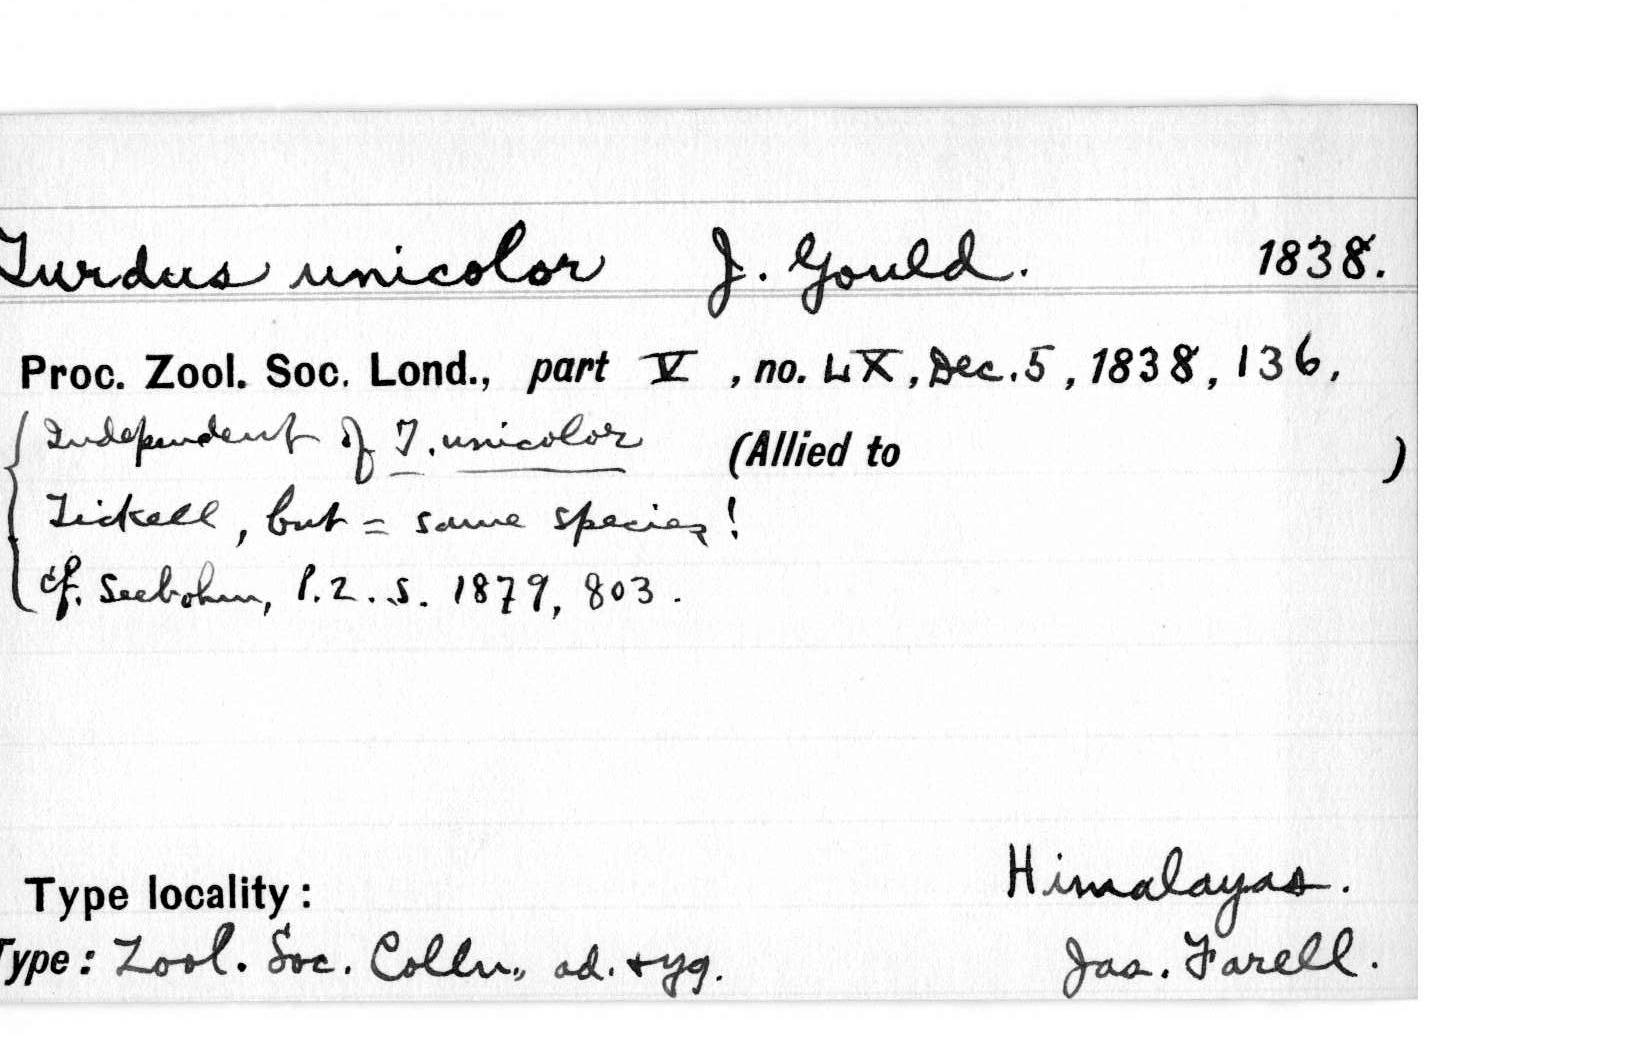 Turdus unicolor J. Gould. 1838.
Proc. Zool. Soc. Lond., part V, no. LX, Dec. 5, 1838, 136,
Independent of T. unicolor (Allied to )
Tickell, but = same species!
cf. Seebohm, P.Z.S. 1879, 803.
Type locality: Himalayas.
Type: Zool. Soc. Colln., ad. + yg. Jas. Farell.